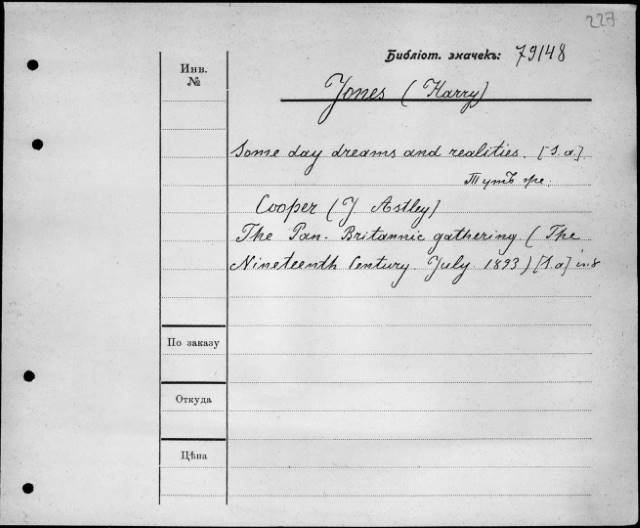 227
Библіот. значекъ: 79148
Инв.
№
Jones (Harry)
Some day dreams and realities. [S.a].
Тутъ же:
Cooper (J. Astley)
The Pan-Britannic gathering. (The
Nineteenth Century. July 1893) [S.a] in 8
По заказу
Откуда
Цѣна